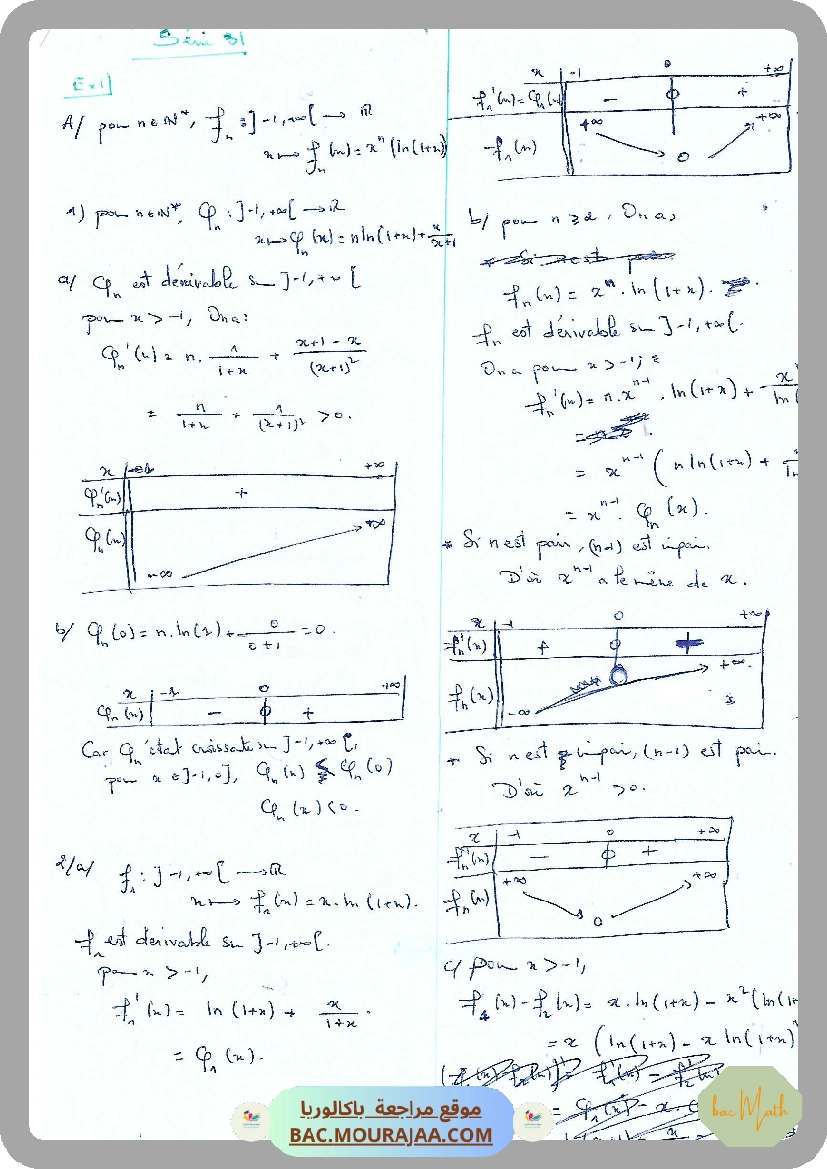 Série 31
Ex1
A/ pour n ∈ ℕ*, fₙ : ]-1, +∞[ → ℝ
x ↦ fₙ(x) = xⁿ (ln(1+x)
1) pour n ∈ ℕ*, φₙ : ]-1, +∞[ → ℝ
x ↦ φₙ(x) = n ln(1+x) + x/(x+1)
a/ φₙ est dérivable sur ]-1, +∞[
pour x > -1, On a :
φₙ'(x) = n . 1/(1+x) + (x+1-x)/(x+1)²
= n/(1+x) + 1/(x+1)² > 0.
x +∞
φₙ'(x) +
φₙ(x) -∞ +∞
b/ φₙ(0) = n.ln(1) + 0/(0+1) = 0.
x -1 0 +∞
φₙ(x) - 0 +
Car φₙ étant croissante sur ]-1, +∞[,
pour x ∈ ]-1, 0], φₙ(x) φₙ(0)
φₙ(x) < 0.
2/a/ f₁ : ]-1, +∞[ → ℝ
x ↦ f₁(x) = x.ln(1+x).
f₁ est dérivable sur ]-1, +∞[.
pour x > -1,
f₁'(x) = ln(1+x) + x/(1+x).
= φ₁(x).
x -1 0 +∞
f₁'(x) = φ₁(x) - 0 +
f₁(x) +∞ 0 +∞
b/ pour n ≥ 2, On a,
fₙ(x) = xⁿ . ln(1+x).
fₙ est dérivable sur ]-1, +∞[.
On a pour x > -1 ;
fₙ'(x) = n.xⁿ⁻¹ . ln(1+x) +
= xⁿ⁻¹ ( n ln(1+x) +
= xⁿ⁻¹ . φₙ(x).
* Si n est pair, (n-1) est impair.
D'où xⁿ⁻¹ a le même de x.
x -1 0 +∞
fₙ'(x) + 0 +
fₙ(x) -∞ 0 +∞
* Si n est impair, (n-1) est pair.
D'où xⁿ⁻¹ > 0.
x -1 0 +∞
fₙ'(x) - 0 +
fₙ(x) +∞ 0 +∞
c/ Pour x > -1,
f₁(x) - f₂(x) = x.ln(1+x) - x² (ln(1+
= x (ln(1+x) - x ln(1+x)
موقع مراجعة باكالوريا
BAC.MOURAJAA.COM
bac Math